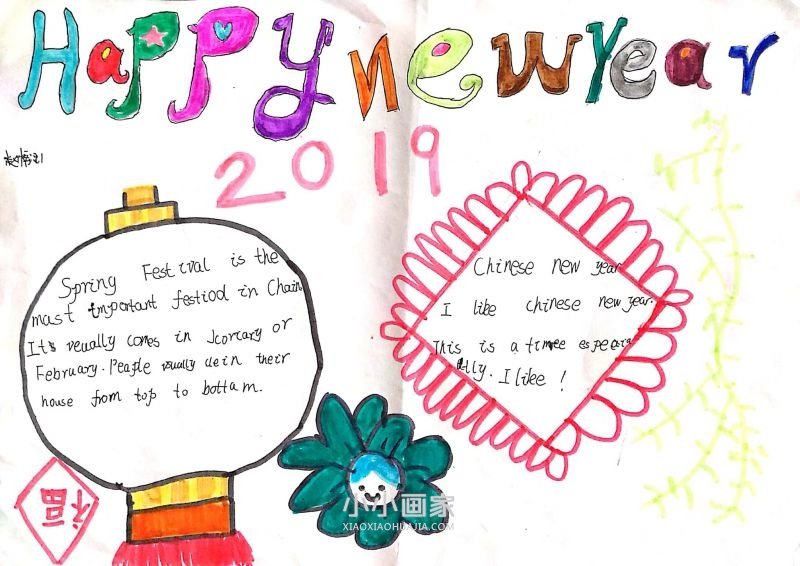 Happy new year
2019
Spring Festival is the
mast important festiod in Chain
It's veually comes in Jcorcary or
February. Peaple usually clein their
house from top to bottam.
Chinese new year
I like chinese new year.
This is a timee especia
lly. I like !
福
小小画家
XIAOXIAOHUAJIA.COM